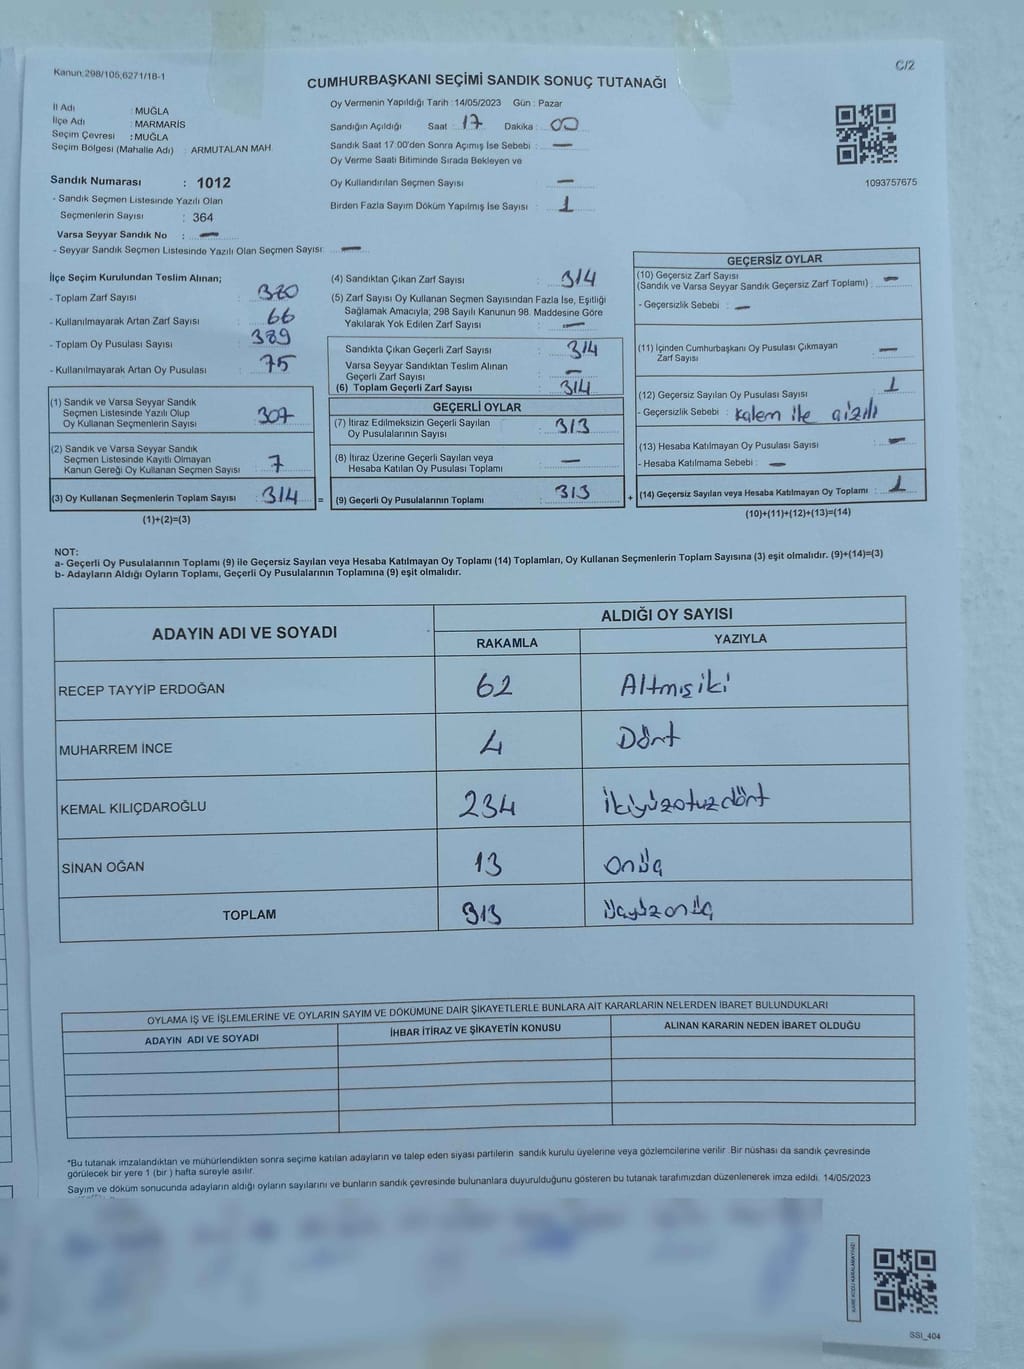 Kanun:298/105,6271/18-1
C/2
CUMHURBAŞKANI SEÇİMİ SANDIK SONUÇ TUTANAĞI
İl Adı : MUĞLA
İlçe Adı : MARMARİS
Seçim Çevresi : MUĞLA
Seçim Bölgesi (Mahalle Adı) : ARMUTALAN MAH.
Oy Vermenin Yapıldığı Tarih : 14/05/2023 Gün : Pazar
Sandığın Açıldığı Saat : 17 Dakika : 00
Sandık Saat 17:00'den Sonra Açımış İse Sebebi : —
Oy Verme Saati Bitiminde Sırada Bekleyen ve
Oy Kullandırılan Seçmen Sayısı : —
Birden Fazla Sayım Döküm Yapılmış İse Sayısı : 1
1093757675
Sandık Numarası : 1012
- Sandık Seçmen Listesinde Yazılı Olan
Seçmenlerin Sayısı : 364
Varsa Seyyar Sandık No : —
- Seyyar Sandık Seçmen Listesinde Yazılı Olan Seçmen Sayısı: —
İlçe Seçim Kurulundan Teslim Alınan;
- Toplam Zarf Sayısı : 380
- Kullanılmayarak Artan Zarf Sayısı : 66
- Toplam Oy Pusulası Sayısı : 389
- Kullanılmayarak Artan Oy Pusulası : 75
(1) Sandık ve Varsa Seyyar Sandık
Seçmen Listesinde Yazılı Olup
Oy Kullanan Seçmenlerin Sayısı : 307
(2) Sandık ve Varsa Seyyar Sandık
Seçmen Listesinde Kayıtlı Olmayan
Kanun Gereği Oy Kullanan Seçmen Sayısı : 7
(3) Oy Kullanan Seçmenlerin Toplam Sayısı : 314 =
(1)+(2)=(3)
(4) Sandıktan Çıkan Zarf Sayısı : 314
(5) Zarf Sayısı Oy Kullanan Seçmen Sayısından Fazla İse, Eşitliği
Sağlamak Amacıyla; 298 Sayılı Kanunun 98. Maddesine Göre
Yakılarak Yok Edilen Zarf Sayısı : —
Sandıkta Çıkan Geçerli Zarf Sayısı : 314
Varsa Seyyar Sandıktan Teslim Alınan
Geçerli Zarf Sayısı : —
(6) Toplam Geçerli Zarf Sayısı : 314
GEÇERLİ OYLAR
(7) İtiraz Edilmeksizin Geçerli Sayılan
Oy Pusulalarının Sayısı : 313
(8) İtiraz Üzerine Geçerli Sayılan veya
Hesaba Katılan Oy Pusulası Toplamı : —
(9) Geçerli Oy Pusulalarının Toplamı : 313 +
GEÇERSİZ OYLAR
(10) Geçersiz Zarf Sayısı
(Sandık ve Varsa Seyyar Sandık Geçersiz Zarf Toplamı) : —
- Geçersizlik Sebebi : —
(11) İçinden Cumhurbaşkanı Oy Pusulası Çıkmayan
Zarf Sayısı : —
(12) Geçersiz Sayılan Oy Pusulası Sayısı : 1
- Geçersizlik Sebebi : Kalem ile çizili
(13) Hesaba Katılmayan Oy Pusulası Sayısı : —
- Hesaba Katılmama Sebebi : —
(14) Geçersiz Sayılan veya Hesaba Katılmayan Oy Toplamı : 1
(10)+(11)+(12)+(13)=(14)
NOT:
a- Geçerli Oy Pusulalarının Toplamı (9) ile Geçersiz Sayılan veya Hesaba Katılmayan Oy Toplamı (14) Toplamları, Oy Kullanan Seçmenlerin Toplam Sayısına (3) eşit olmalıdır. (9)+(14)=(3)
b- Adayların Aldığı Oyların Toplamı, Geçerli Oy Pusulalarının Toplamına (9) eşit olmalıdır.
ADAYIN ADI VE SOYADI
ALDIĞI OY SAYISI
RAKAMLA YAZIYLA
RECEP TAYYİP ERDOĞAN 62 Altmışiki
MUHARREM İNCE 4 Dört
KEMAL KILIÇDAROĞLU 234 İkiyüzotuzdört
SİNAN OĞAN 13 onüç
TOPLAM 313 üçyüzonüç
OYLAMA İŞ VE İŞLEMLERİNE VE OYLARIN SAYIM VE DÖKÜMÜNE DAİR ŞİKAYETLERLE BUNLARA AİT KARARLARIN NELERDEN İBARET BULUNDUKLARI
ADAYIN ADI VE SOYADI İHBAR İTİRAZ VE ŞİKAYETİN KONUSU ALINAN KARARIN NEDEN İBARET OLDUĞU
*Bu tutanak imzalandıktan ve mühürlendikten sonra seçime katılan adayların ve talep eden siyasi partilerin sandık kurulu üyelerine veya gözlemcilerine verilir. Bir nüshası da sandık çevresinde
görülecek bir yere 1 (bir ) hafta süreyle asılır.
Sayım ve döküm sonucunda adayların aldığı oyların sayılarını ve bunların sandık çevresinde bulunanlara duyurulduğunu gösteren bu tutanak tarafımızdan düzenlenerek imza edildi. 14/05/2023
SSI_404